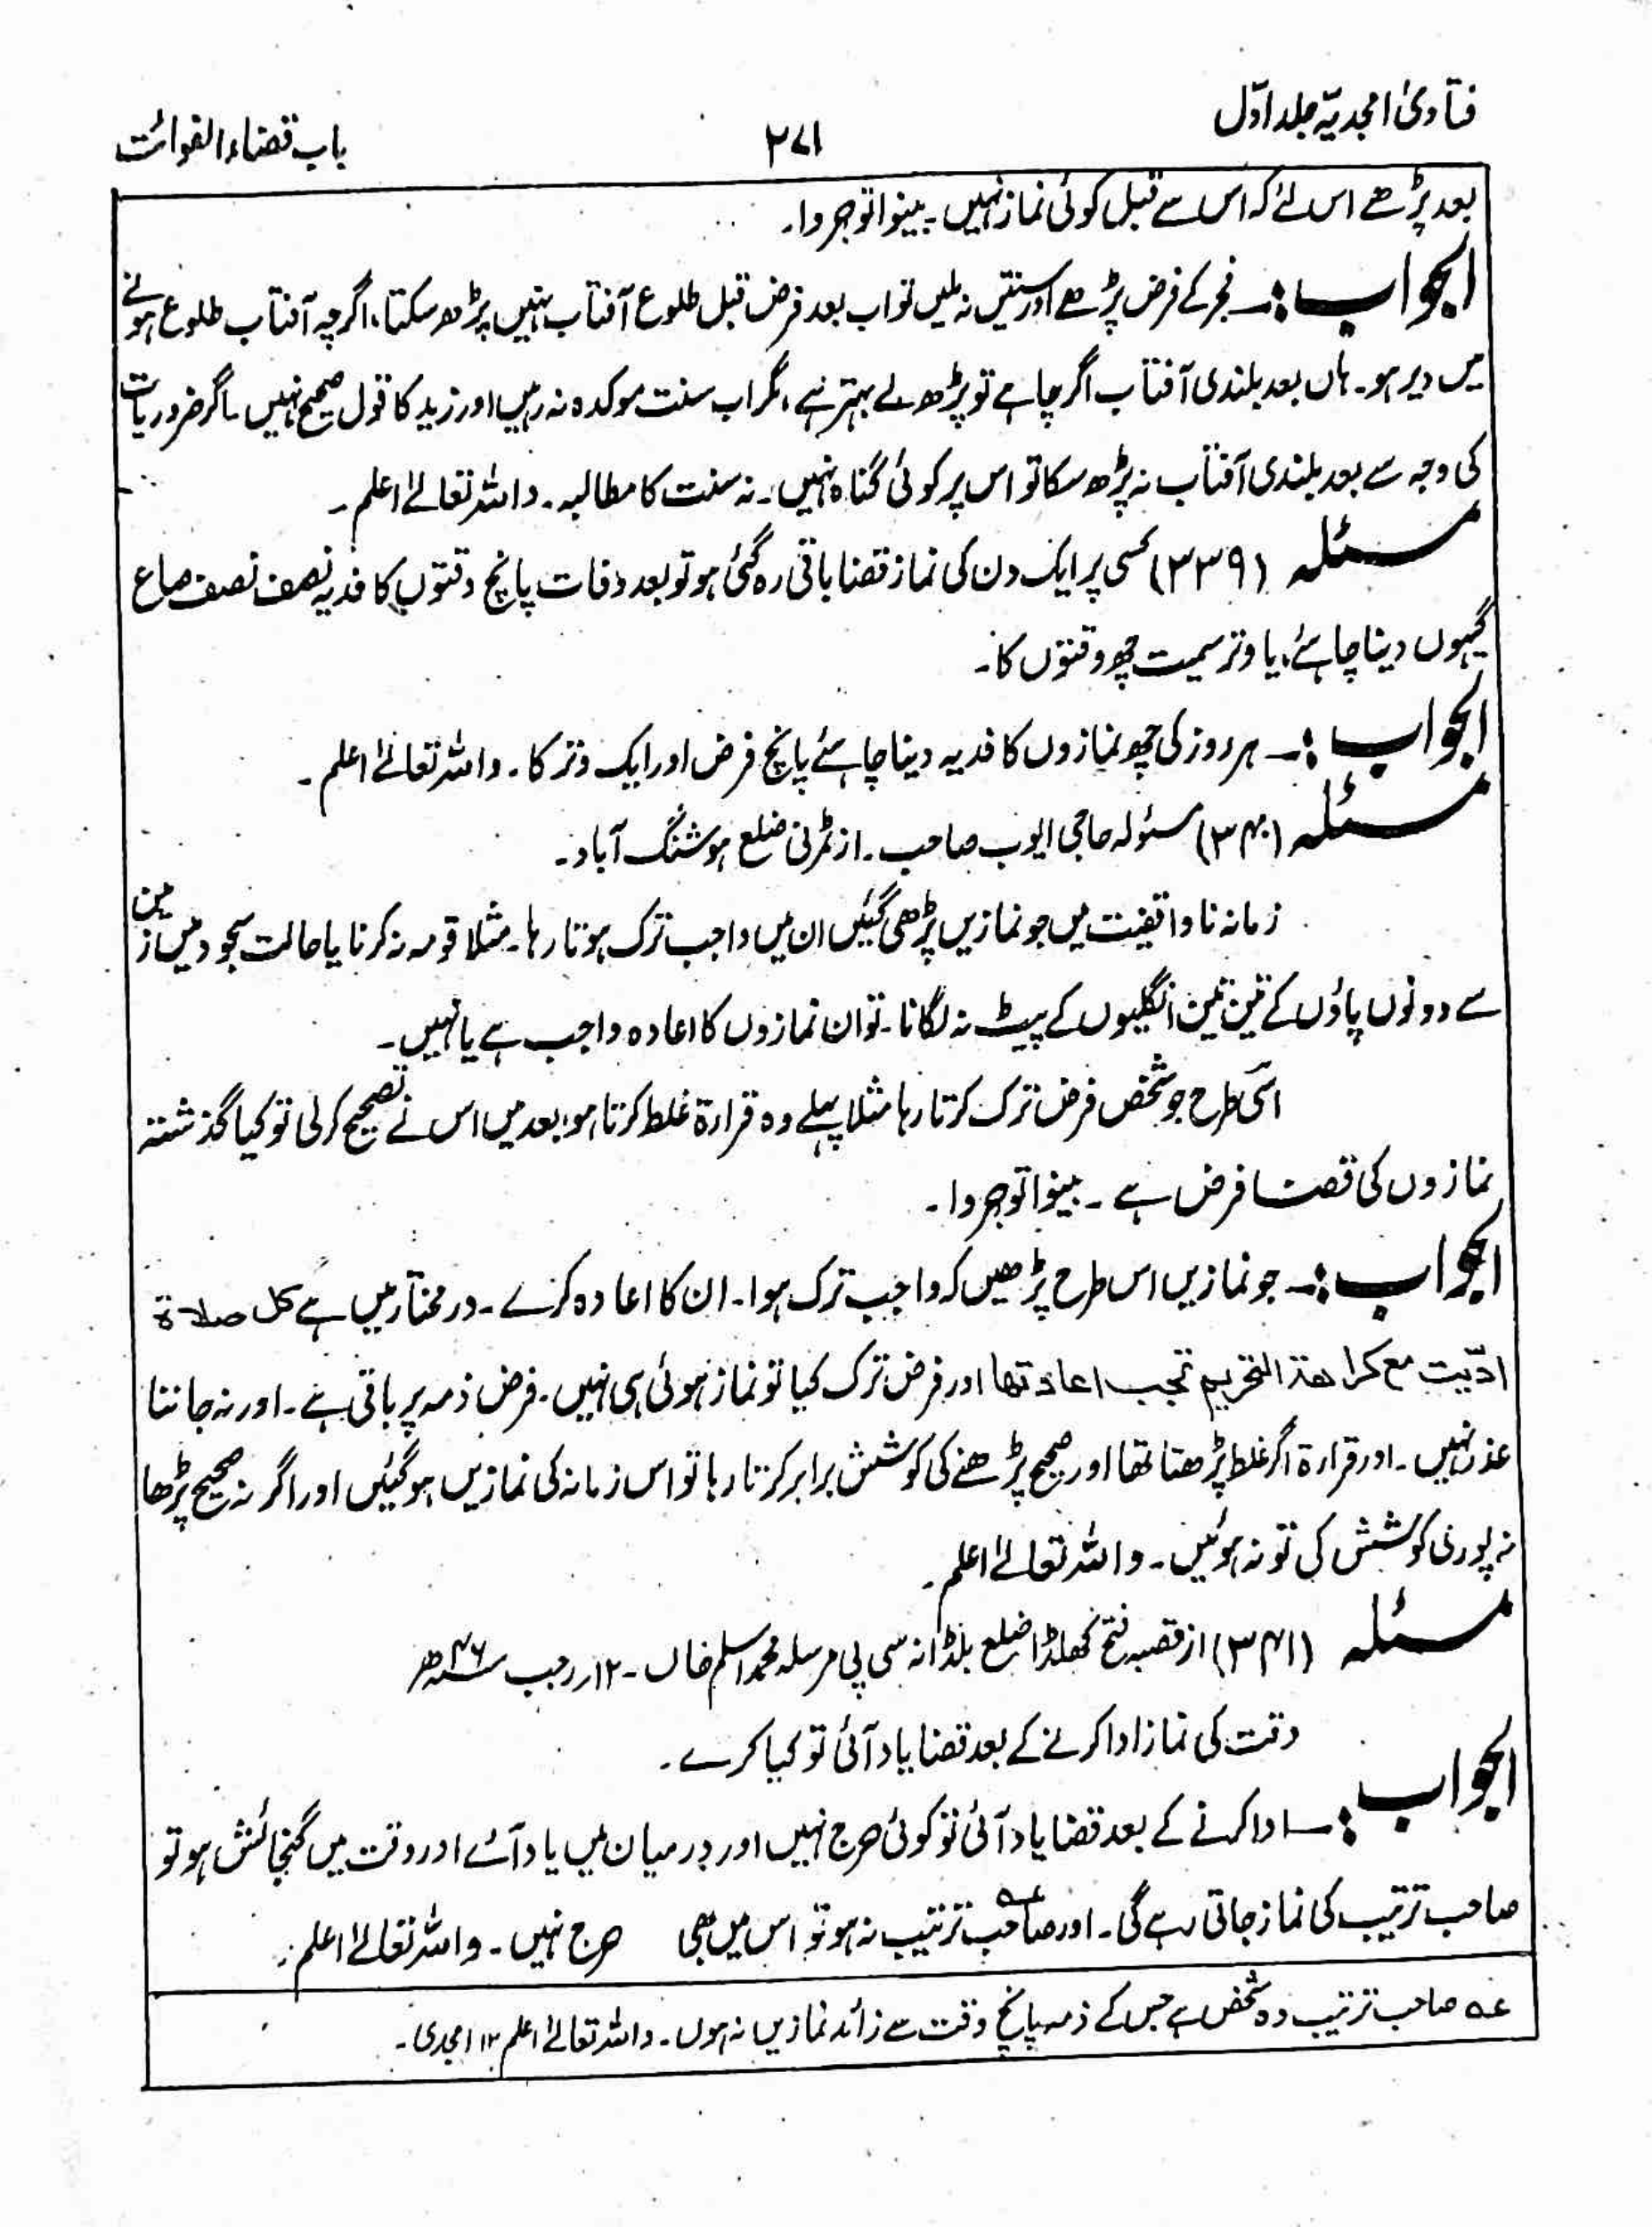 فتاویٰ امجدیہ جلد اوّل
۲۷۱
باب قضاء الفوائت
بعد پڑھے اس لئے کہ اس سے قبل کوئی نماز نہیں۔ بینوا توجروا۔
الجواب :۔ فجر کے فرض پڑھے اور سنتیں نہ ملیں تو اب بعد فرض قبل طلوع آفتاب نہیں پڑھ سکتا، اگرچہ آفتاب طلوع ہونے
میں دیر ہو۔ ہاں بعد بلندی آفتاب اگر چاہے تو پڑھ لے بہتر ہے، مگر اب سنت موکدہ نہ رہیں اور زید کا قول صحیح نہیں۔ اگر ضروریات
کی وجہ سے بعد بلندی آفتاب نہ پڑھ سکا تو اس پر کوئی گناہ نہیں۔ نہ سنت کا مطالبہ۔ واللہ تعالیٰ اعلم۔
مسئلہ (۳۳۹) کسی پر ایک دن کی نماز قضا باقی رہ گئی ہو تو بعد وفات پانچ وقتوں کا فدیہ نصف نصف صاع
گیہوں دینا چاہئے، یا وتر سمیت چھ وقتوں کا۔
الجواب :۔ ہر روز کی چھ نمازوں کا فدیہ دینا چاہئے پانچ فرض اور ایک وتر کا۔ واللہ تعالیٰ اعلم۔
مسئلہ (۳۴۰) مسئولہ حاجی ایوب صاحب۔ از ٹمرنی ضلع ہوشنگ آباد۔
زمانہ ناواقفیت میں جو نمازیں پڑھی گئیں ان میں واجب ترک ہوتا رہا۔ مثلا قومہ نہ کرنا یا حالت سجود میں زمین
سے دونوں پاؤں کے تین تین انگلیوں کے پیٹ نہ لگانا۔ تو ان نمازوں کا اعادہ واجب ہے یا نہیں۔
اسی طرح جو شخص فرض ترک کرتا رہا مثلا پہلے وہ قرارۃ غلط کرتا ہو، بعد میں اس نے تصحیح کرلی تو کیا گذشتہ
نمازوں کی قضا فرض ہے۔ بینوا توجروا۔
الجواب :۔ جو نمازیں اس طرح پڑھیں کہ واجب ترک ہوا۔ ان کا اعادہ کرے۔ در مختار میں ہے کل صلاة
ادّیت مع کراهة التحریم تجب اعادتها اور فرض ترک کیا تو نماز ہوئی ہی نہیں۔ فرض ذمہ پر باقی ہے۔ اور نہ جاننا
عذر نہیں۔ اور قرارۃ اگر غلط پڑھتا تھا اور صحیح پڑھنے کی کوشش برابر کرتا رہا تو اس زمانہ کی نمازیں ہوگئیں اور اگر نہ صحیح پڑھا
نہ پوری کوشش کی تو نہ ہوئیں۔ واللہ تعالیٰ اعلم۔
مسئلہ (۳۴۱) از قصبہ فتح کھلڈا ضلع بلڈانہ سی پی مرسلہ محمد اسلم خاں۔ ۱۲؍ رجب ۴۶ھ
وقت کی نماز ادا کرنے کے بعد قضا یاد آئی تو کیا کرے۔
الجواب :۔ ادا کرنے کے بعد قضا یاد آئی تو کوئی حرج نہیں اور درمیان میں یاد آئے اور وقت میں گنجائش ہو تو
صاحب ترتیب کی نماز جاتی رہے گی۔ اور صاحب ترتیب عہ نہ ہو تو اس میں بھی حرج نہیں۔ واللہ تعالیٰ اعلم۔
عہ صاحب ترتیب وہ شخص ہے جس کے ذمہ پانچ وقت سے زائد نمازیں نہ ہوں۔ واللہ تعالیٰ اعلم ۱۲ امجدی۔